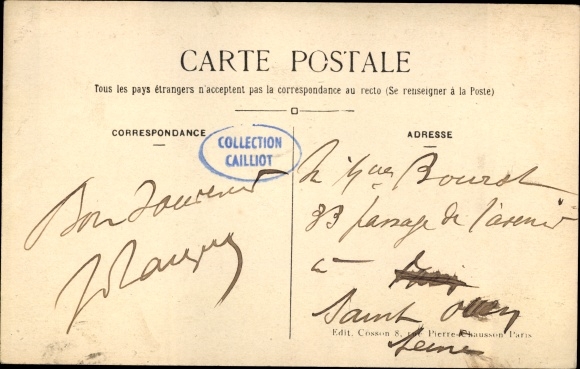 CARTE POSTALE
Tous les pays étrangers n'acceptent pas la correspondance au recto (Se renseigner à la Poste)
CORRESPONDANCE
COLLECTION
CAILLIOT
Bon Souvenir
ADRESSE
Bourst
33 passage de l'avenir
à
Saint Ouen
Seine
Edit. Cosson 8, rue Pierre-Chausson Paris